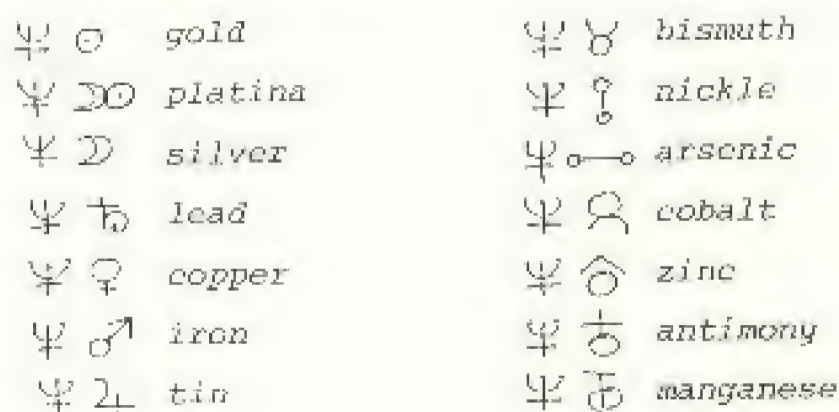 gold
platina
silver
lead
copper
iron
tin
bismuth
nickle
arsenic
cobalt
zinc
antimony
manganese